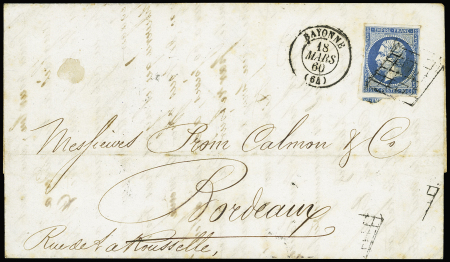 BAYONNE
18
MARS
60
(64)
EMPIRE FRANC
Messieurs Prom Calmon & Co
Bordeaux
Rue de la Rousselle,